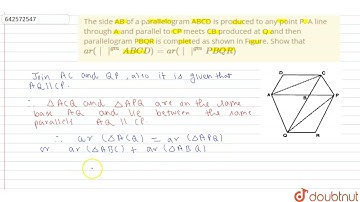 642572547
The side AB of a parallelogram ABCD is produced to any point P. A line
through A and parallel to CP meets CB produced at Q and then
parallelogram PBQR is completed as shown in Figure. Show that
ar(||ᵍᵐ ABCD) = ar(||ᵍᵐ PBQR)
D C
A B P
Q R
Join AC and QP, also it is given that
AQ || CP.
∴ △ACQ and △APQ are on the same
base AQ and lie between the same
parallels AQ || CP
∴ ar (△ACQ) = ar (△APQ)
or ar (△ABC) + ar (△ABQ)
doubtnut